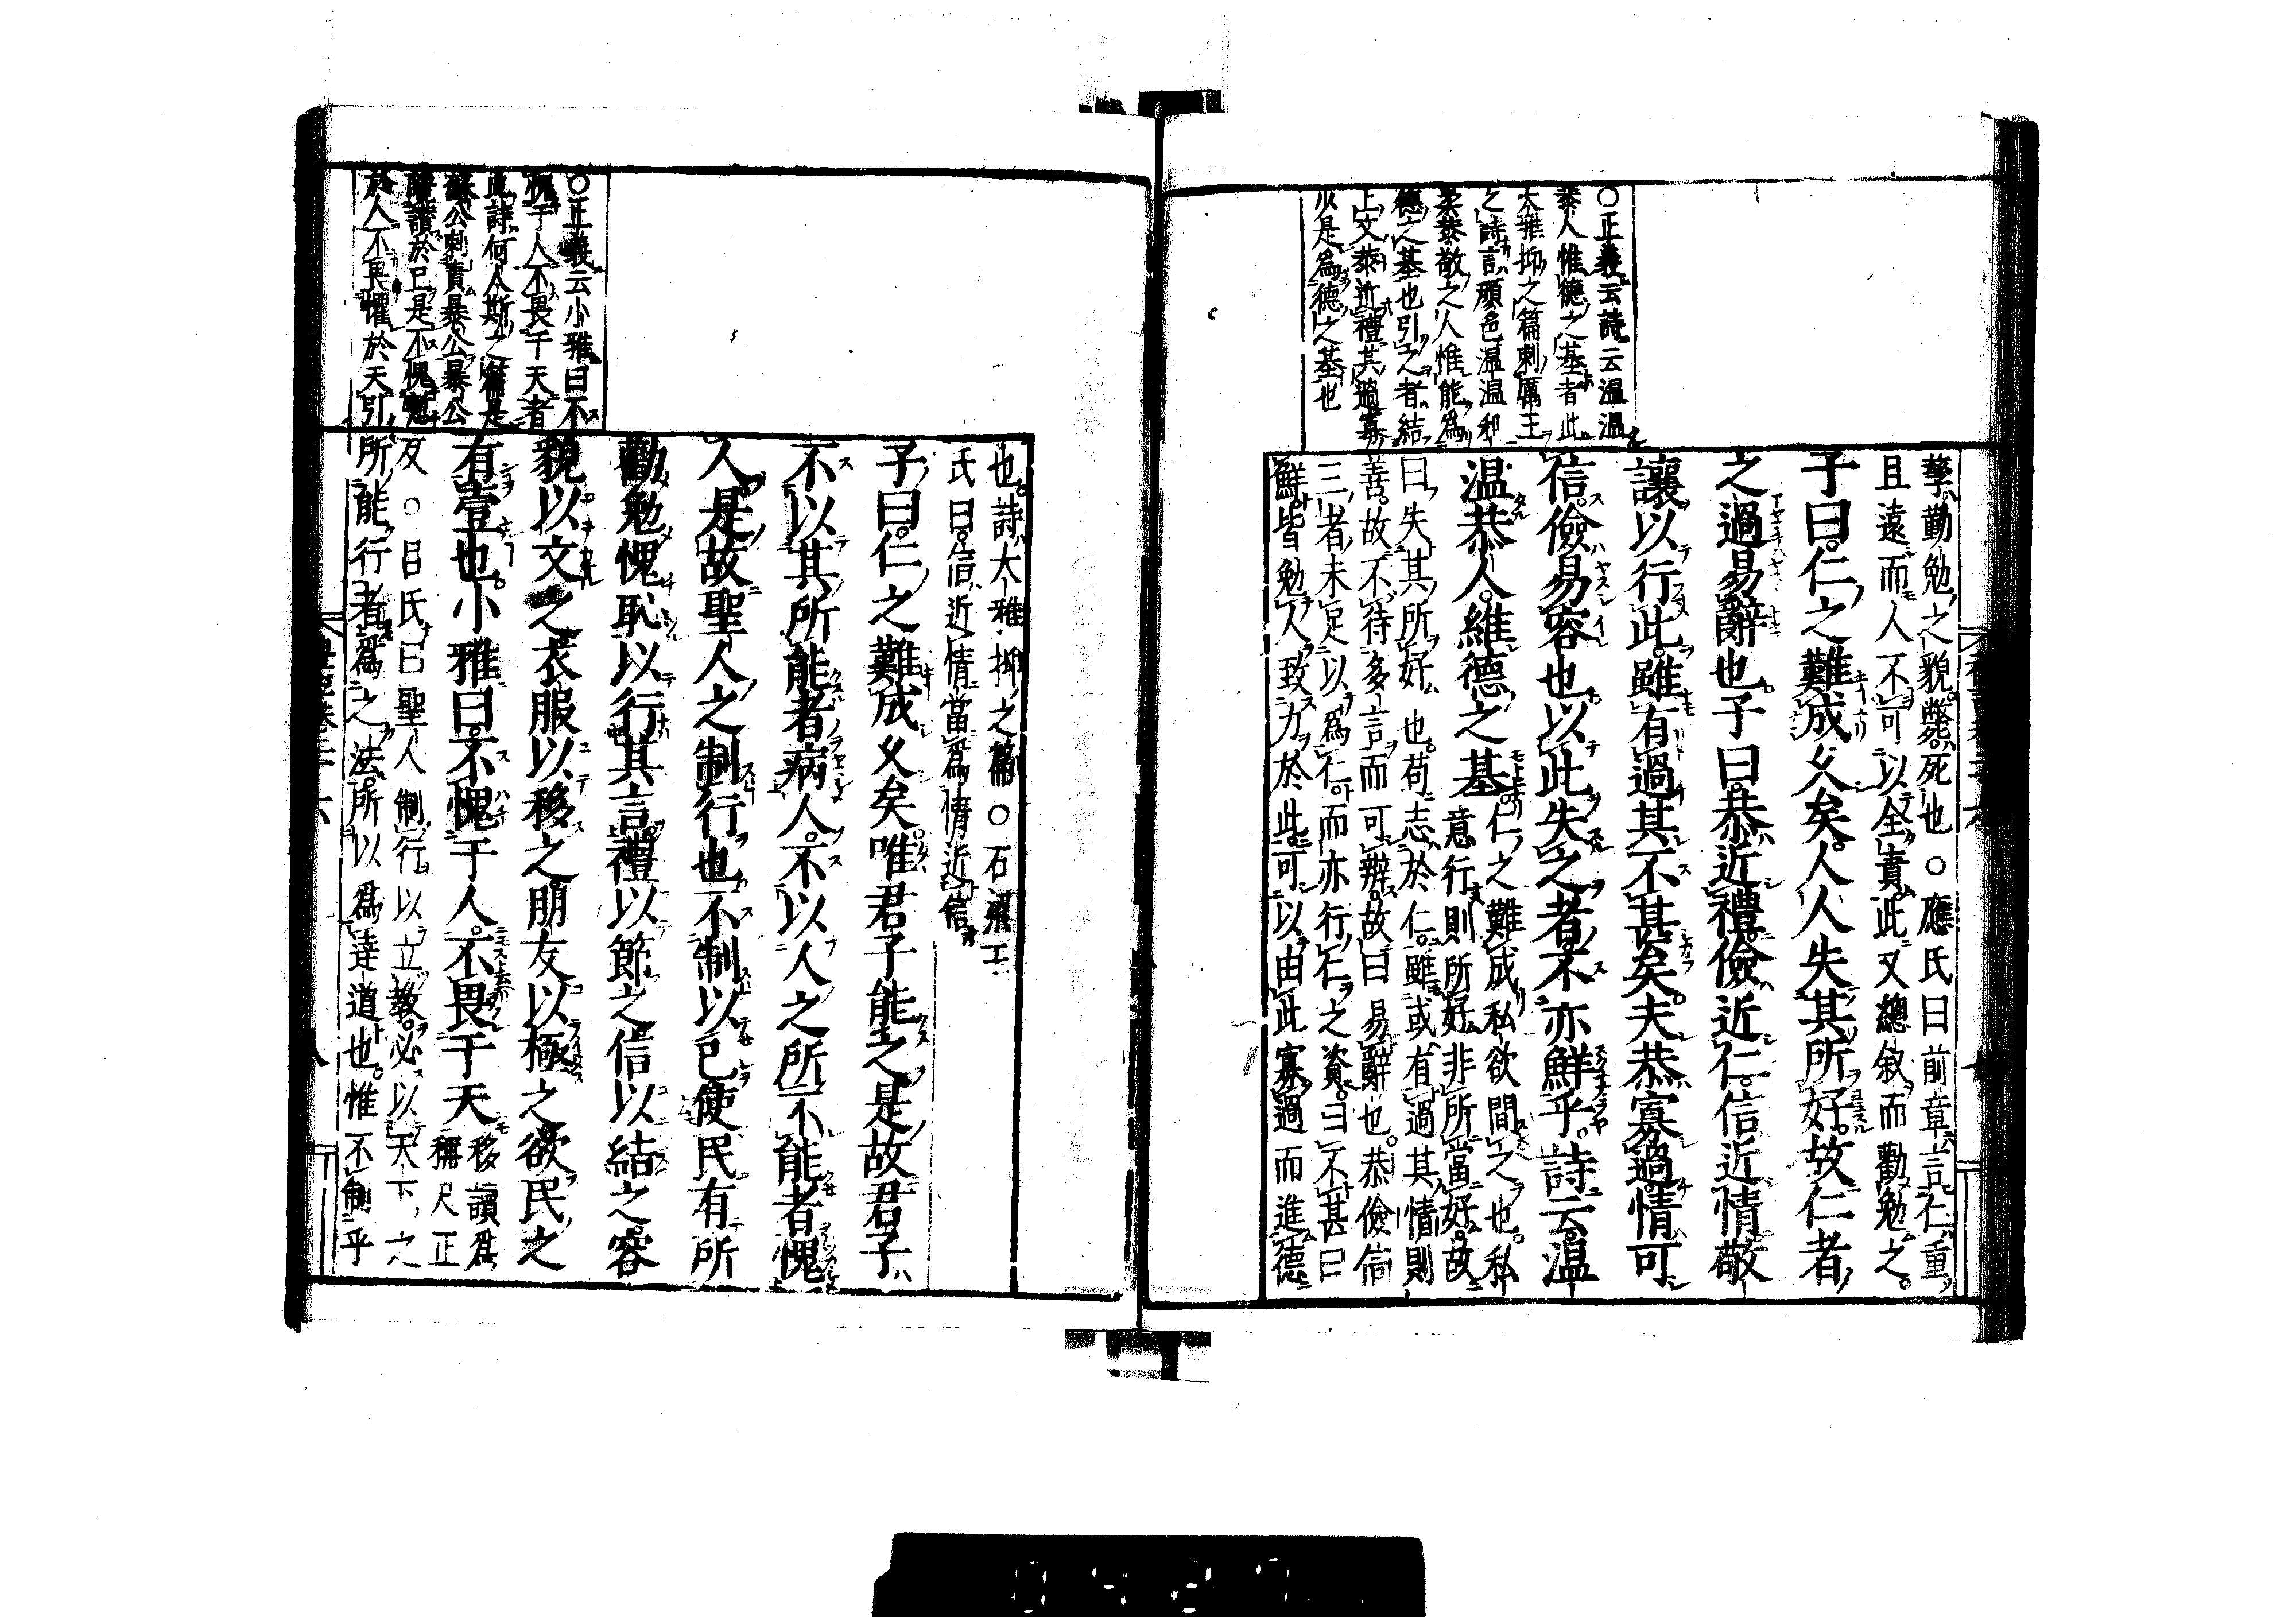 ○正義云詩云温温
恭人惟德之基者此
大雅抑之篇刺厲王
之詩言顔色温温和
柔恭敬之人惟能爲
德之基也引之者結
上文恭近禮其過寡
以是爲德之基也
孳勤勉之貌斃死也○應氏曰前章言仁重
且遠而人不可以全責此又總叙而勸勉之
子曰仁之難成久矣人人失其所好故仁者
之過易辭也子曰恭近禮儉近仁信近情敬
讓以行此雖有過其不甚矣夫恭寡過情可
信儉易容也以此失之者不亦鮮乎詩云温
温恭人維德之基仁之難成私欲間之也私
意行則所好非所當好故
曰失其所好也苟志於仁雖或有過其情則
善故不待多言而可辨故曰易辭也恭儉信
三者未足以爲仁而亦行仁之資曰不甚曰
鮮皆勉人致力於此可以由此寡過而進德
○正義云小雅曰不
愧于人不畏于天者
此詩何人斯之篇是
蘇公刺責暴公暴公
譖讃於已是不愧愬
於人不畏懼於天引
也詩大雅抑之篇○石梁王
氏曰信近情當爲情近信
子曰仁之難成久矣唯君子能之是故君子
不以其所能者病人不以人之所不能者愧
人是故聖人之制行也不制以已使民有所
勸勉愧恥以行其言禮以節之信以結之容
貌以文之衣服以移之朋友以極之欲民之
有壹也小雅曰不愧于人不畏于天移讀爲
稱尺正
反○呂氏曰聖人制行以立教必以天下之
所能行者爲之法所以爲達道也惟不制乎